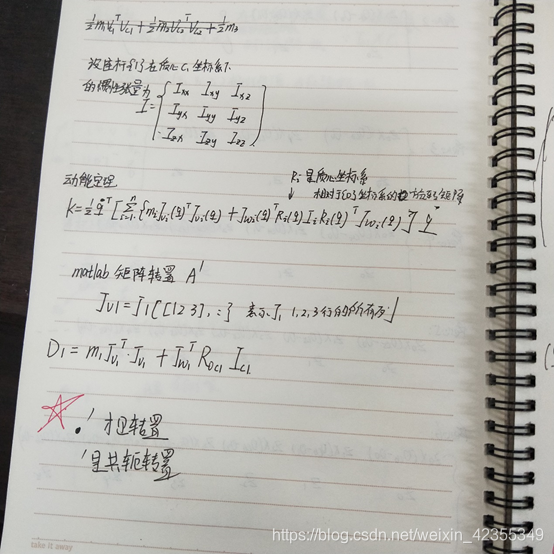 ½m₁V_{c1}^T V_{c1} + ½m₂V_{c2}^T V_{c2} + ½m₃
设连杆i在质心C_i坐标系下
的惯性张量为
I = { Ixx Ixy Ixz
Iyx Iyy Iyz
Izx Izy Izz }
动能定理
R_i 是质心坐标系
相对于{0}坐标系的 矩阵
K = ½ q̇^T [ Σ_{i=1}^n { m_i J_{vi}(q)^T J_{vi}(q) + J_{wi}(q)^T R_i(q) I_i R_i(q)^T J_{wi}(q) } ] q̇
matlab 矩阵转置 A'
J_{v1} = J_1{[1 2 3], :} 表示J_1 1,2,3行的所有列
D_1 = m_1 J_{v1}^T · J_{v1} + J_{w1}^T R_{0c1} I_{c1}
.' 才是转置
'是共轭转置
take it away
https://blog.csdn.net/weixin_42355349